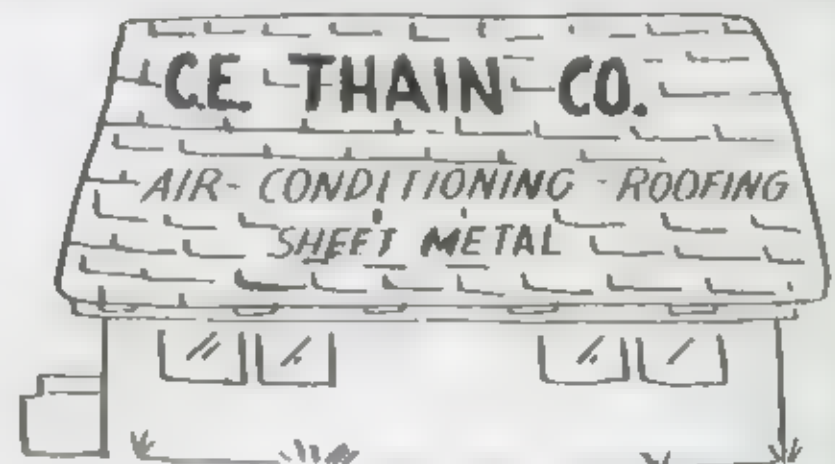 C.E. THAIN CO.
AIR-CONDITIONING-ROOFING
SHEET METAL